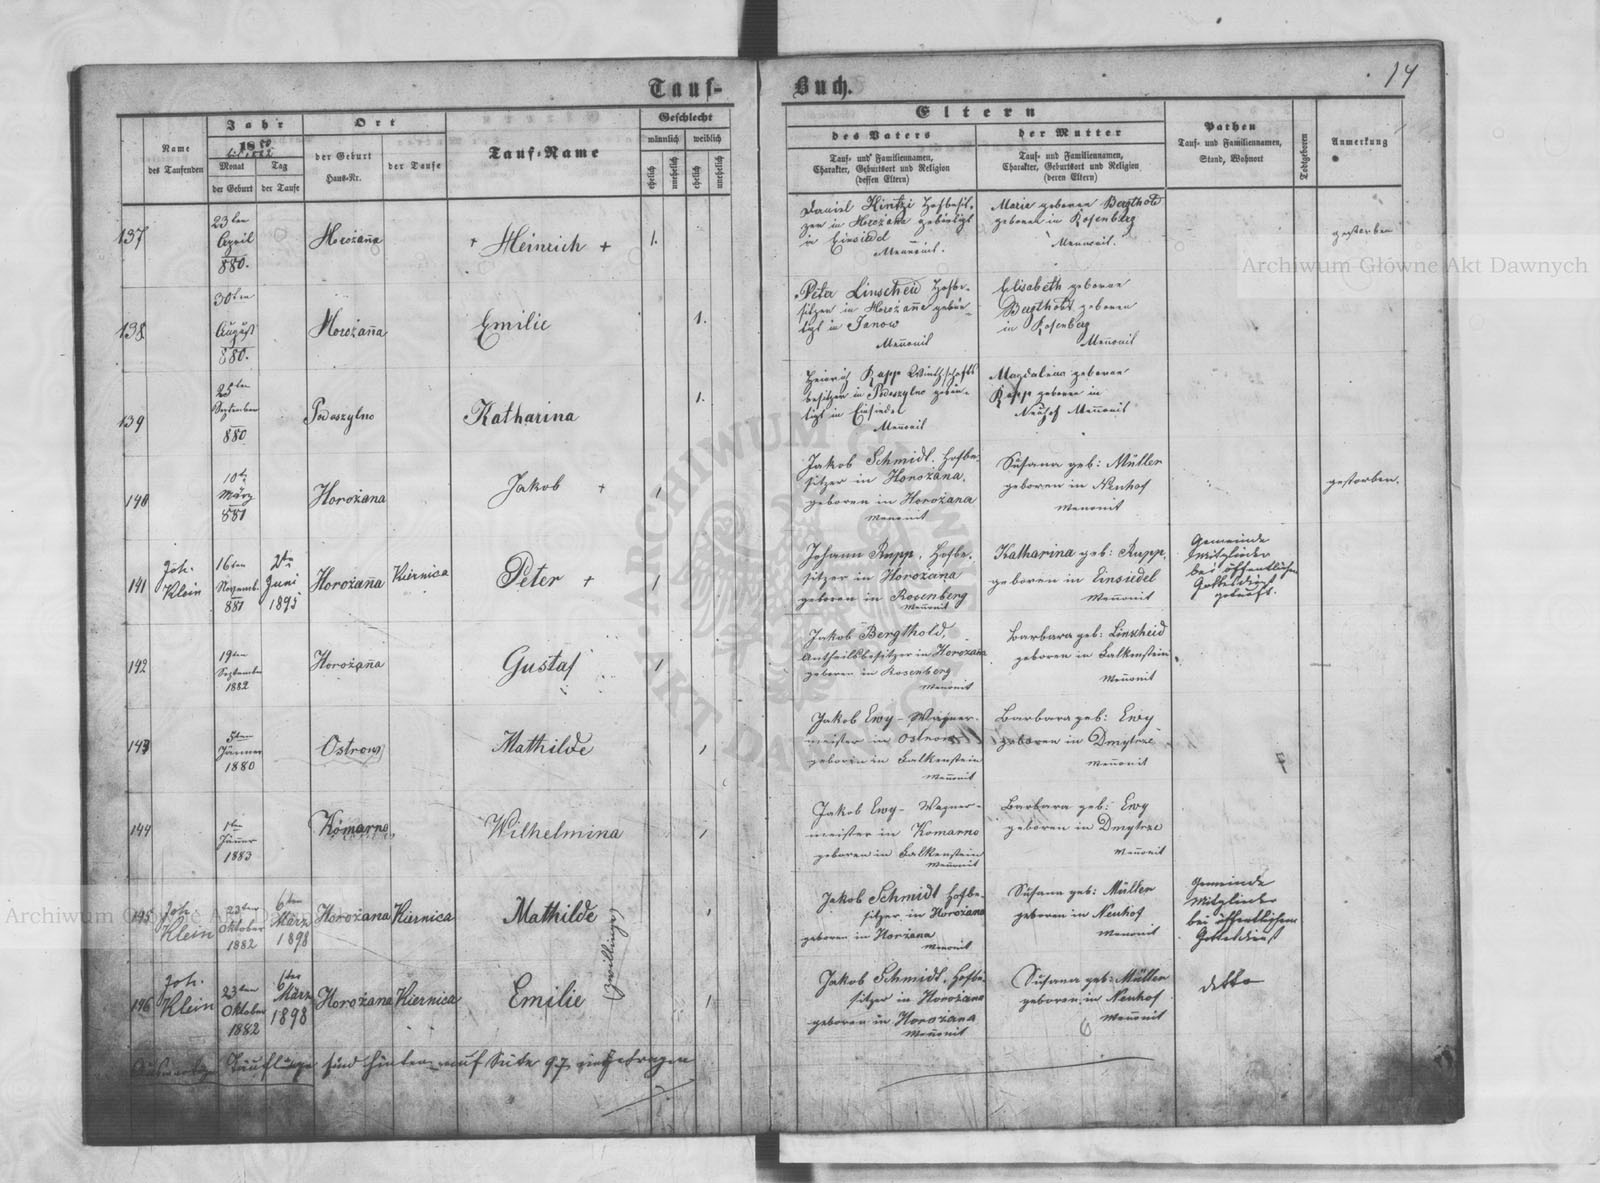 14
Tauf-Buch.
Name
des Taufenden
Jahr
1880
bis 1882
Monat
der Geburt
Tag
der Taufe
Ort
der Geburt
Haus-Nr.
der Taufe
Tauf-Name
Geschlecht
männlich
weiblich
ehelich
unehelich
ehelich
unehelich
Eltern
des Vaters
Tauf- und Familiennamen,
Charakter, Geburtsort und Religion
(dessen Eltern)
der Mutter
Tauf- und Familiennamen,
Charakter, Geburtsort und Religion
(deren Eltern)
Pathen
Tauf- und Familiennamen,
Stand, Wohnort
Todtgeboren
Anmerkung
137
23ten
April
880.
Horożańa
+ Heinrich +
1.
Daniel Hintzi Hofbesit-
zer in Horożańa gebürtigt
in Einsiedel
Mennonit.
Marie geboren Bergthold
geboren in Rosenberg
Mennonit.
gestorben
138
30ten
August
880.
Horożańa
Emilie
1.
Peter Linscheid Hofbe-
sitzer in Horożańe gebür-
tigt in Janow
Meñonit
Elisabeth geboren
Bergthold geboren
in Rosenberg
Meñonit
139
25ten
September
880
Podoszylno
Katharina
1.
Heinrich Rupp Wirthschafts
besitzer in Podoszylno gebür-
tigt in Einsiedel
Meñonit
Magdalena geboren
Rupp geboren in
Neuhof Meñonit
140
10te
März
881
Horożana
Jakob +
1
Jakob Schmidt, Hofbe-
sitzer in Horożana,
geboren in Horożana
Menonit
Susana geb: Müller
geboren in Neuhof
Menonit
gestorben.
141
Joh.
Klein
16ten
Novemb.
881
2te
Juni
1895
Horożańa
Kiernica
Peter +
1
Johann Rupp, Hofbe-
sitzer in Horożana
geboren in Rosenberg
Meñonit
Katharina geb: Rupp,
geboren in Einsiedel
Meñonit
Gemeinde
Mitglieder
bei öffentlichem
Gottesdienst
getauft.
142
19ten
September
1882
Horożańa
Gustaf
1
Jakob Bergthold,
Antheilsbesitzer in Horożana
geboren in Rosenberg
Menonit
Barbara geb: Linscheid
geboren in Falkenstein
Meñonit
143
5ten
Jänner
1880
Ostrow
Mathilde
1
Jakob Ewy – Wagner-
meister in Ostrow
geboren in Falkenstein
Meñonit
Barbara geb: Ewy
geboren in Dmytrze
Meñonit
144
1ten
Jänner
1883
Komarno
Wilhelmina
1
Jakob Ewy – Wagner-
meister in Komarno
geboren in Falkenstein
Meñonit
Barbara geb: Ewy
geboren in Dmytrze
Meñonit
145
Joh.
Klein
23ten
Oktober
1882
6ten
März
1898
Horożana
Kiernica
Mathilde
(Zwillinge)
1
Jakob Schmidt Hofbe-
sitzer in Horożana
geboren in Horożana
Menonit
Susana geb: Müller
geboren in Neuhof
Menonit
Gemeinde
Mitglieder
bei öffentlichem
Gottesdienst
146
Joh.
Klein
23ten
Oktober
1882
6ten
März
1898
Horożana
Kiernica
Emilie
1
Jakob Schmidt, Hofbe-
sitzer in Horożana
geboren in Horożana
Meñonit
Susana geb: Müller
geboren in Neuhof
Meñonit
detto
Auswärtige Täuflinge sind hinten auf Seite 97 eingetragen
Archiwum Główne Akt Dawnych
Archiwum Główne Akt Dawnych
ARCHIWUM GŁÓWNE AKT DAWNYCH